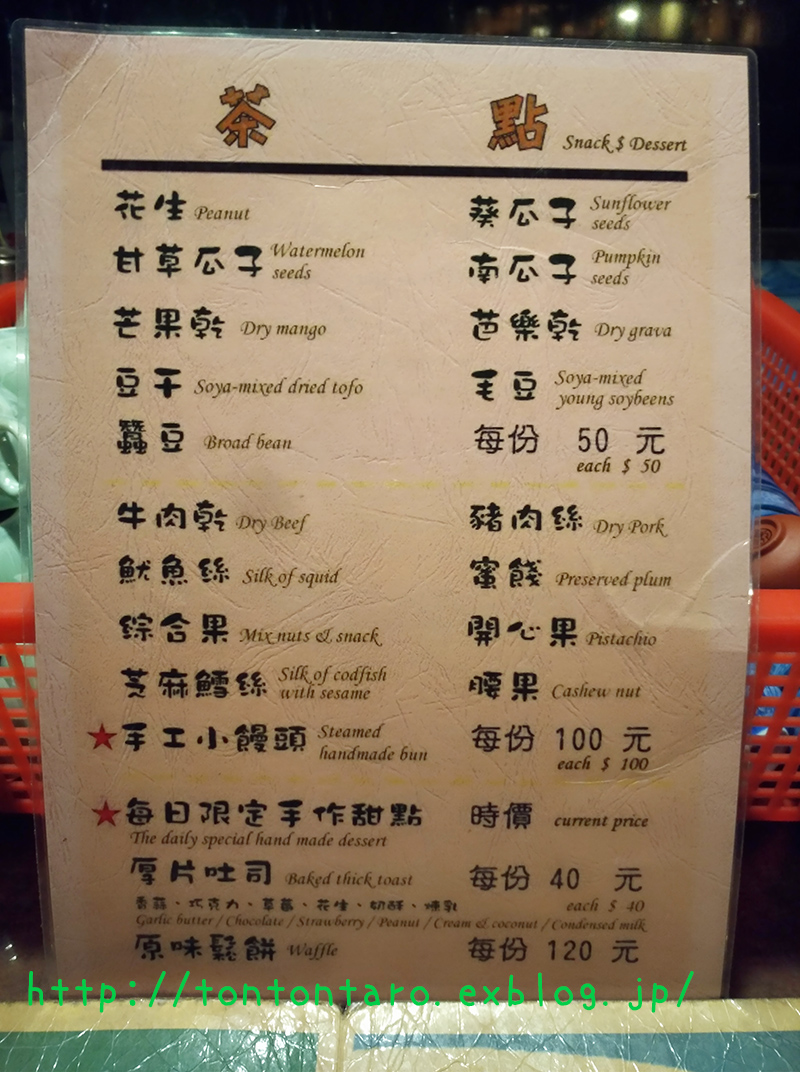 茶點 Snack $ Dessert
花生 Peanut
葵瓜子 Sunflower seeds
甘草瓜子 Watermelon seeds
南瓜子 Pumpkin seeds
芒果乾 Dry mango
芭樂乾 Dry grava
豆干 Soya-mixed dried tofo
毛豆 Soya-mixed young soybeens
蠶豆 Broad bean
每份 50 元
each $ 50
牛肉乾 Dry Beef
豬肉絲 Dry Pork
魷魚絲 Silk of squid
蜜餞 Preserved plum
綜合果 Mix nuts & snack
開心果 Pistachio
芝麻鱈絲 Silk of codfish with sesame
腰果 Cashew nut
★手工小饅頭 Steamed handmade bun
每份 100 元
each $ 100
★每日限定手作甜點 時價 current price
The daily special hand made dessert
厚片吐司 Baked thick toast 每份 40 元
香蒜、巧克力、草莓、花生、奶酥、煉乳 each $ 40
Garlic butter / Chocolate / Strawberry / Peanut / Cream & coconut / Condensed milk
原味鬆餅 Waffle 每份 120 元
http://tontontaro.exblog.jp/